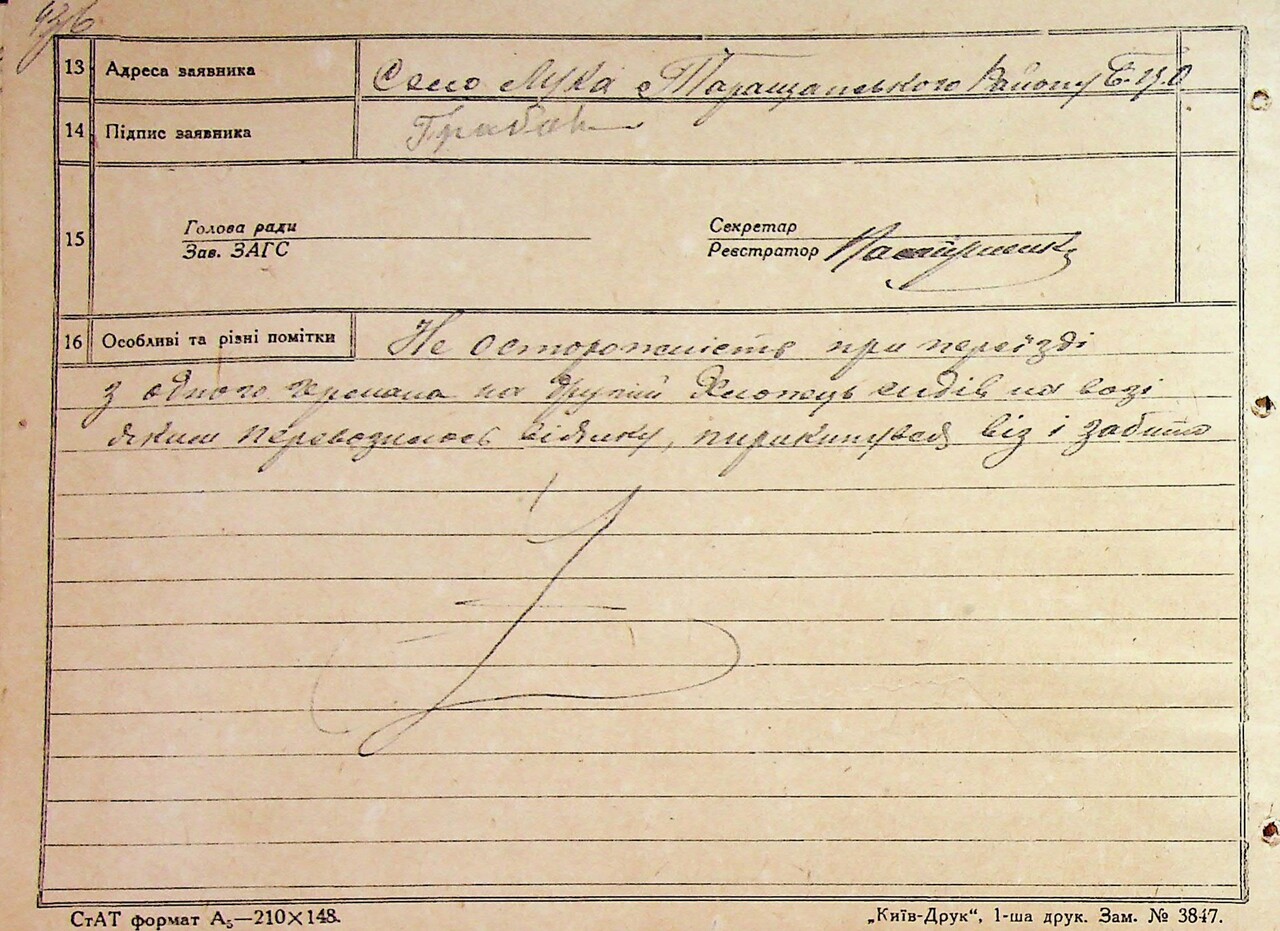 13 Адреса заявника Село Лука Таращанського Району
14 Підпис заявника
15 Голова ради
Зав. ЗАГС
Секретар
Реєстратор
16 Особливі та різні помітки Не осторожність при переїзді
з одного на другий Хлопець сидів на возі
яким перевозилось віялку, пирикинувся віз і забито
СтАТ формат А₅—210×148.
„Київ-Друк“, 1-ша друк. Зам. № 3847.